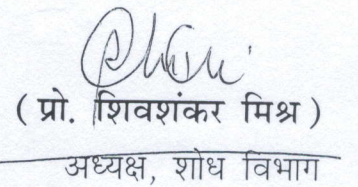 ( प्रो. शिवशंकर मिश्र )
अध्यक्ष, शोध विभाग